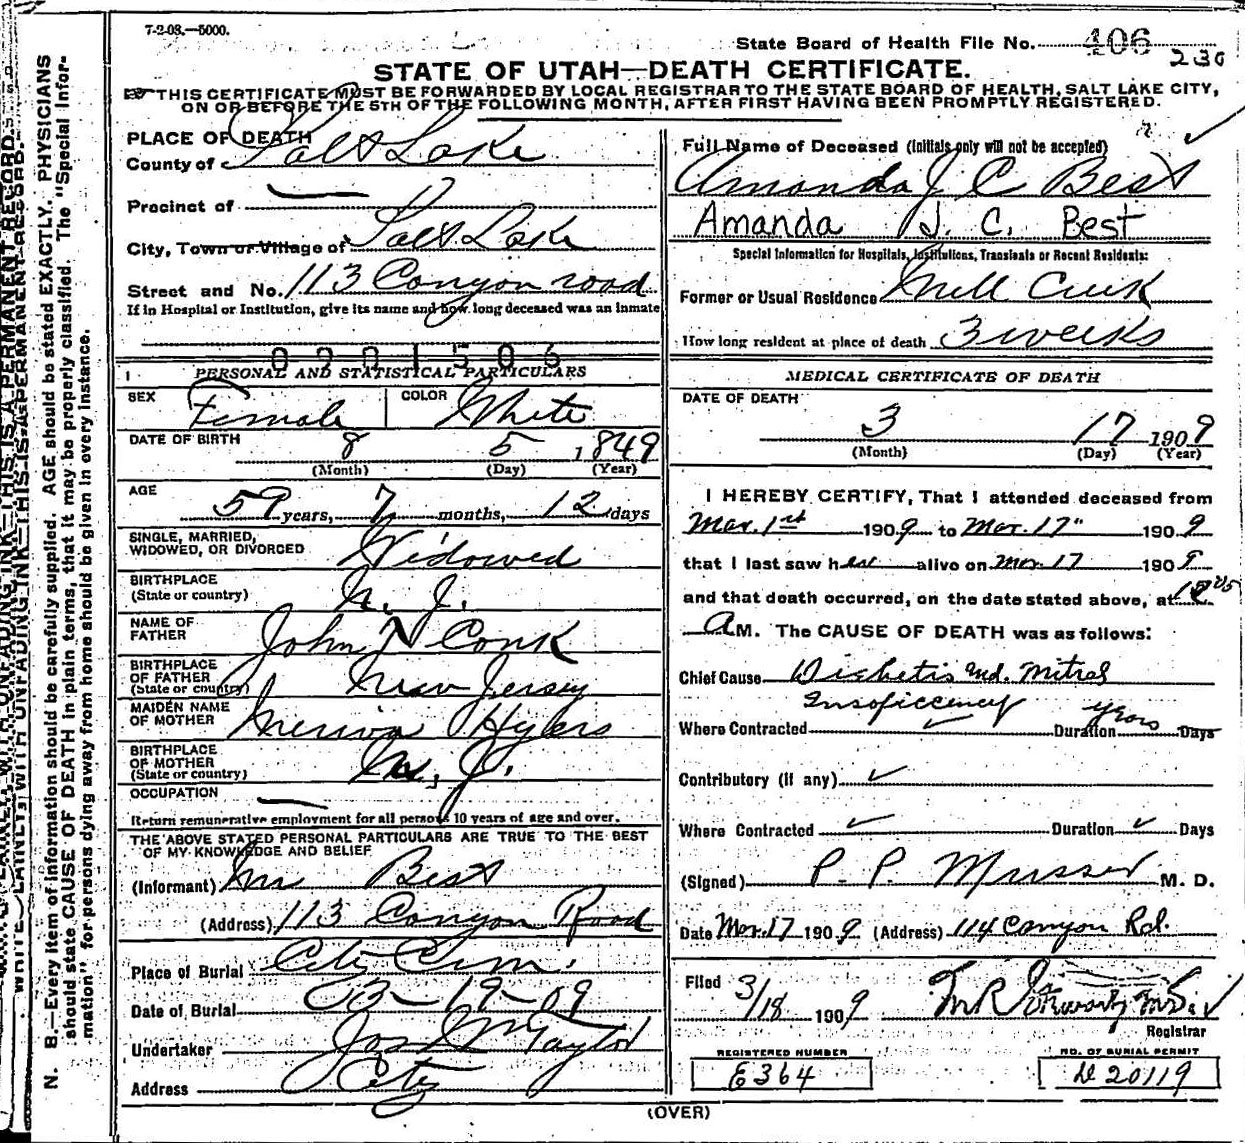 7-2-08.—5000.
State Board of Health File No. 406
230
STATE OF UTAH—DEATH CERTIFICATE.
THIS CERTIFICATE MUST BE FORWARDED BY LOCAL REGISTRAR TO THE STATE BOARD OF HEALTH, SALT LAKE CITY,
ON OR BEFORE THE 5TH OF THE FOLLOWING MONTH, AFTER FIRST HAVING BEEN PROMPTLY REGISTERED.
PLACE OF DEATH
County of Salt Lake
Precinct of —
City, Town or Village of Salt Lake
Street and No. 113 Canyon road
If in Hospital or Institution, give its name and how long deceased was an inmate
0201506
PERSONAL AND STATISTICAL PARTICULARS
SEX Female COLOR White
DATE OF BIRTH 8 5 1849
(Month) (Day) (Year)
AGE
59 years, 7 months, 12 days
SINGLE, MARRIED,
WIDOWED, OR DIVORCED Widowed
BIRTHPLACE
(State or country) N. J.
NAME OF
FATHER John N Conk
BIRTHPLACE
OF FATHER
(State or country) New Jersey
MAIDEN NAME
OF MOTHER Hylers
BIRTHPLACE
OF MOTHER
(State or country) N. J.
OCCUPATION —
Return remunerative employment for all persons 10 years of age and over.
THE ABOVE STATED PERSONAL PARTICULARS ARE TRUE TO THE BEST
OF MY KNOWLEDGE AND BELIEF
(Informant) Best
(Address) 113 Canyon Road
Place of Burial City Cem.
Date of Burial 03-19-09
Undertaker Jos Taylor
Address City
Full Name of Deceased (Initials only will not be accepted)
Amanda J C Best
Amanda J. C. Best
Special Information for Hospitals, Institutions, Transients or Recent Residents:
Former or Usual Residence Mill Creek
How long resident at place of death 3 weeks
MEDICAL CERTIFICATE OF DEATH
DATE OF DEATH
3 17 1909
(Month) (Day) (Year)
I HEREBY CERTIFY, That I attended deceased from
Mar. 1st 1909 to Mar. 17" 1909
that I last saw her alive on Mar. 17 1909
and that death occurred, on the date stated above, at
A M. The CAUSE OF DEATH was as follows:
Chief Cause Diabetis and Mitral
Insoficcency
Where Contracted Duration years Days
Contributory (if any)
Where Contracted Duration Days
(Signed) P. P. Musser M. D.
Date Mar. 17 1909 (Address) 114 Canyon Rd.
Filed 3/18 1909
Registrar
REGISTERED NUMBER
E364
NO. OF BURIAL PERMIT
20119
(OVER)
N. B.—Every item of information should be carefully supplied. AGE should be stated EXACTLY. PHYSICIANS
should state CAUSE OF DEATH in plain terms, that it may be properly classified. The "Special Infor-
mation" for persons dying away from home should be given in every instance.
WRITE PLAINLY WITH UNFADING INK—THIS IS A PERMANENT RECORD.